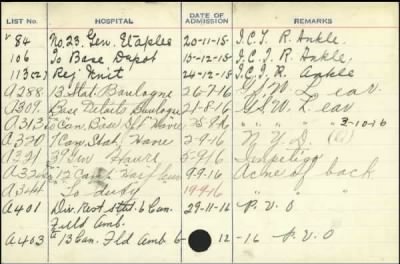 LIST NO. HOSPITAL DATE OF ADMISSION REMARKS
√ 84 No. 23. Gen. Etaples 20-11-15 I.C.T. R. Ankle.
106 To Base Depot 15-12-15 I.C.T. R. Ankle.
113 Rej Unit 24-12-15 I.C.T. R Ankle
A288 13 Stat. Boulogne 26-7-16 G.S.W. L ear
A309 Base Details Boulogne 21-8-16 G.S.W L ear
A313 Can. Base Havre 25-8-16 " " "
3-10-16
A320 7 Can Stat. Havre 2-9-16 N.Y.D.
A331 39 Gen Havre 5-9-16 Impetigo
12 Can 9.9.16 Acne of back
A344 To duty 19916 " " "
A401 Div. Rest Stat. 6 Can. 29-11-16 P.U.O
Field Amb.
A403 " 13 Can. Fld Amb. 6- 12 -16 P.U.O